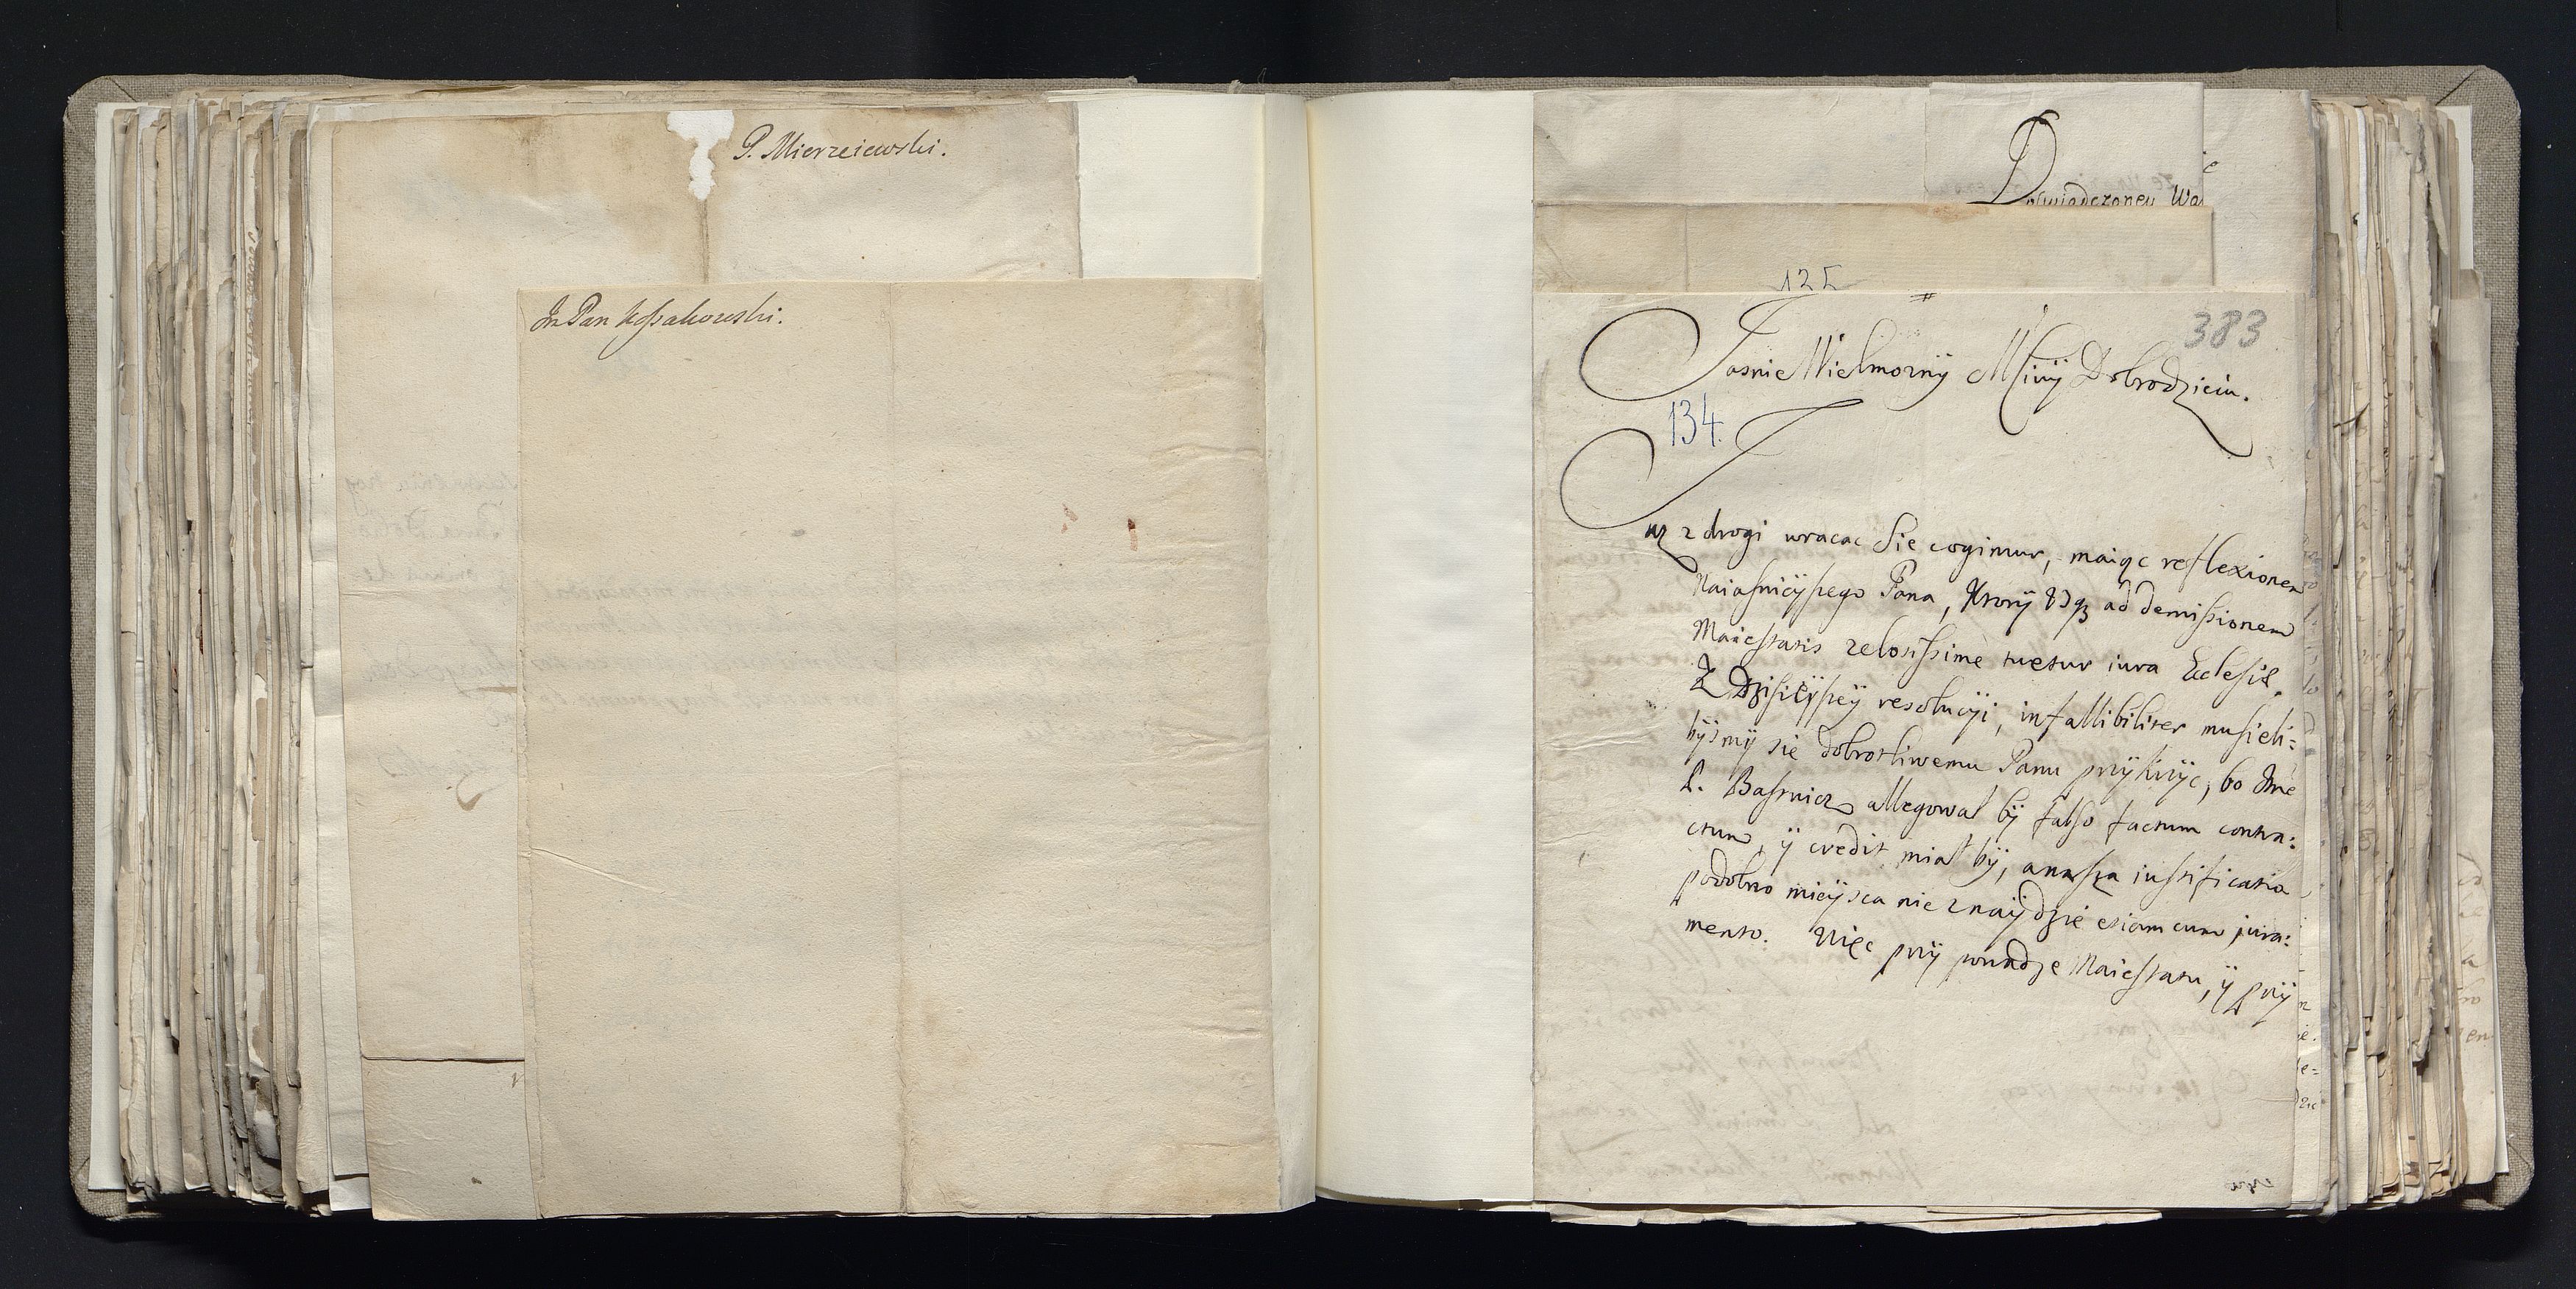 P. Mierzeiewski.
Jm Pan Kossakowski.
Doswiadczoney Wa
125
383
Jasnie Wielmozny Msciwy Dobrodzieiu.
134.
Juz z drogi wracac sie cogimur, maiąc reflexionem
Naiasnieyszego Pana, ktory usq3 ad demissionem
Maiestatis zelosissime tuetur iura Ecclesiæ.
Z dzisieyszey resolucyi, infallibiliter musieli:
bysmy sie dobrotliwemu Panu przykrzyc, bo Jme
P. Basnicz allegowal by falso factum contra:
ctum, y credit mial by, a nasza iustificatia
podobno mieysca nie znaydzie etiam cum jura:
mento. Więc przy powadze Maiestatu, y przy